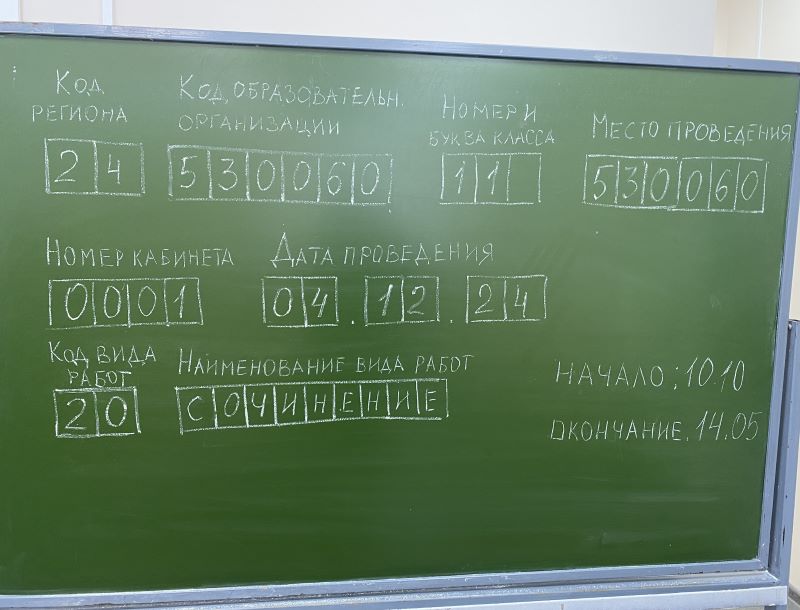 КОД РЕГИОНА
24
КОД ОБРАЗОВАТЕЛЬН. ОРГАНИЗАЦИИ
530060
НОМЕР И БУКВА КЛАССА
11
МЕСТО ПРОВЕДЕНИЯ
530060
НОМЕР КАБИНЕТА
0001
ДАТА ПРОВЕДЕНИЯ
04.12.24
КОД ВИДА РАБОТ
20
НАИМЕНОВАНИЕ ВИДА РАБОТ
СОЧИНЕНИЕ
НАЧАЛО: 10.10
ОКОНЧАНИЕ. 14.05